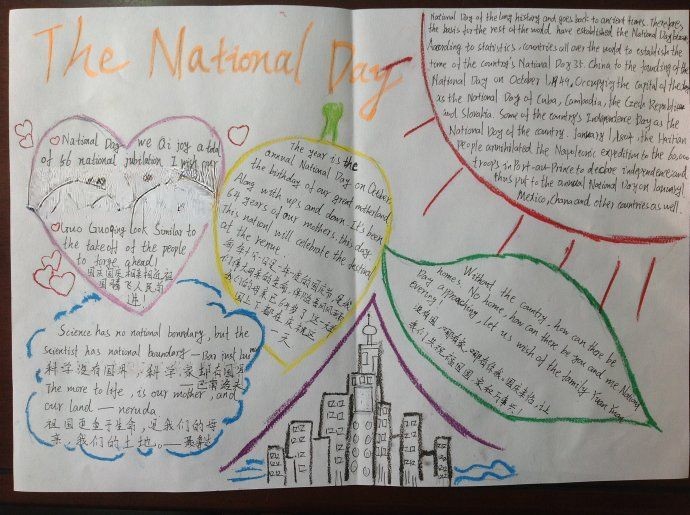 The National Day
National Day of the long history and goes back to ancient times. Therefore,
the basis for the rest of the world have established the National Day
According to statistics, countries all over the world to establish the
time of the country's National Day 35. China to the founding of the
National Day on October 1, 1949, Occupying the capital of the
as the National Day of Cuba, Cambodia, the Czech Republic
and Slovakia. Some of the country's Independence Day as the
National Day of the country. January 1, the Haitian
people annihilated the Napoleonic expedition to the 60,000
troops in Port-au-Prince to declare independence and
thus put to the annual National Day on January 1
Mexico, Ghana and other countries as well.
National Day we Ai joy a
of 56 national jubilation I wish
Guo Guoqing look similar to
the takeoff of the people
to forge ahead!
国庆国庆相亲相
国腾飞人民
进!
The year is the
annual National Day on October
the birthday of our great motherland.
Along with ups and down. It's been
64 years of our mothers this day
this nation will celebrate the festival
at the venue.
每年十月一日是一年一度的国庆节,是我
们伟大母亲的生日,伴随着风风雨雨
我们的母亲已64岁了这一天
国上下都在庆祝这
一天
Without the country, how can there be
homes. No home, how can there be you and me National
Day approaching, let us wish of the family Yuan Yuan
every
没有国,哪有家,哪有你我,国庆来临,让
我们共祝福国圆,家和万事兴!
Science has no national boundary, but the
scientist has national boundary —
科学没有国界,科学家却有国界
——巴甫洛夫
The more to life, is our mother, and
our land — neruda
祖国更重于生命,是我们的母
亲,我们的土地。——聂鲁达